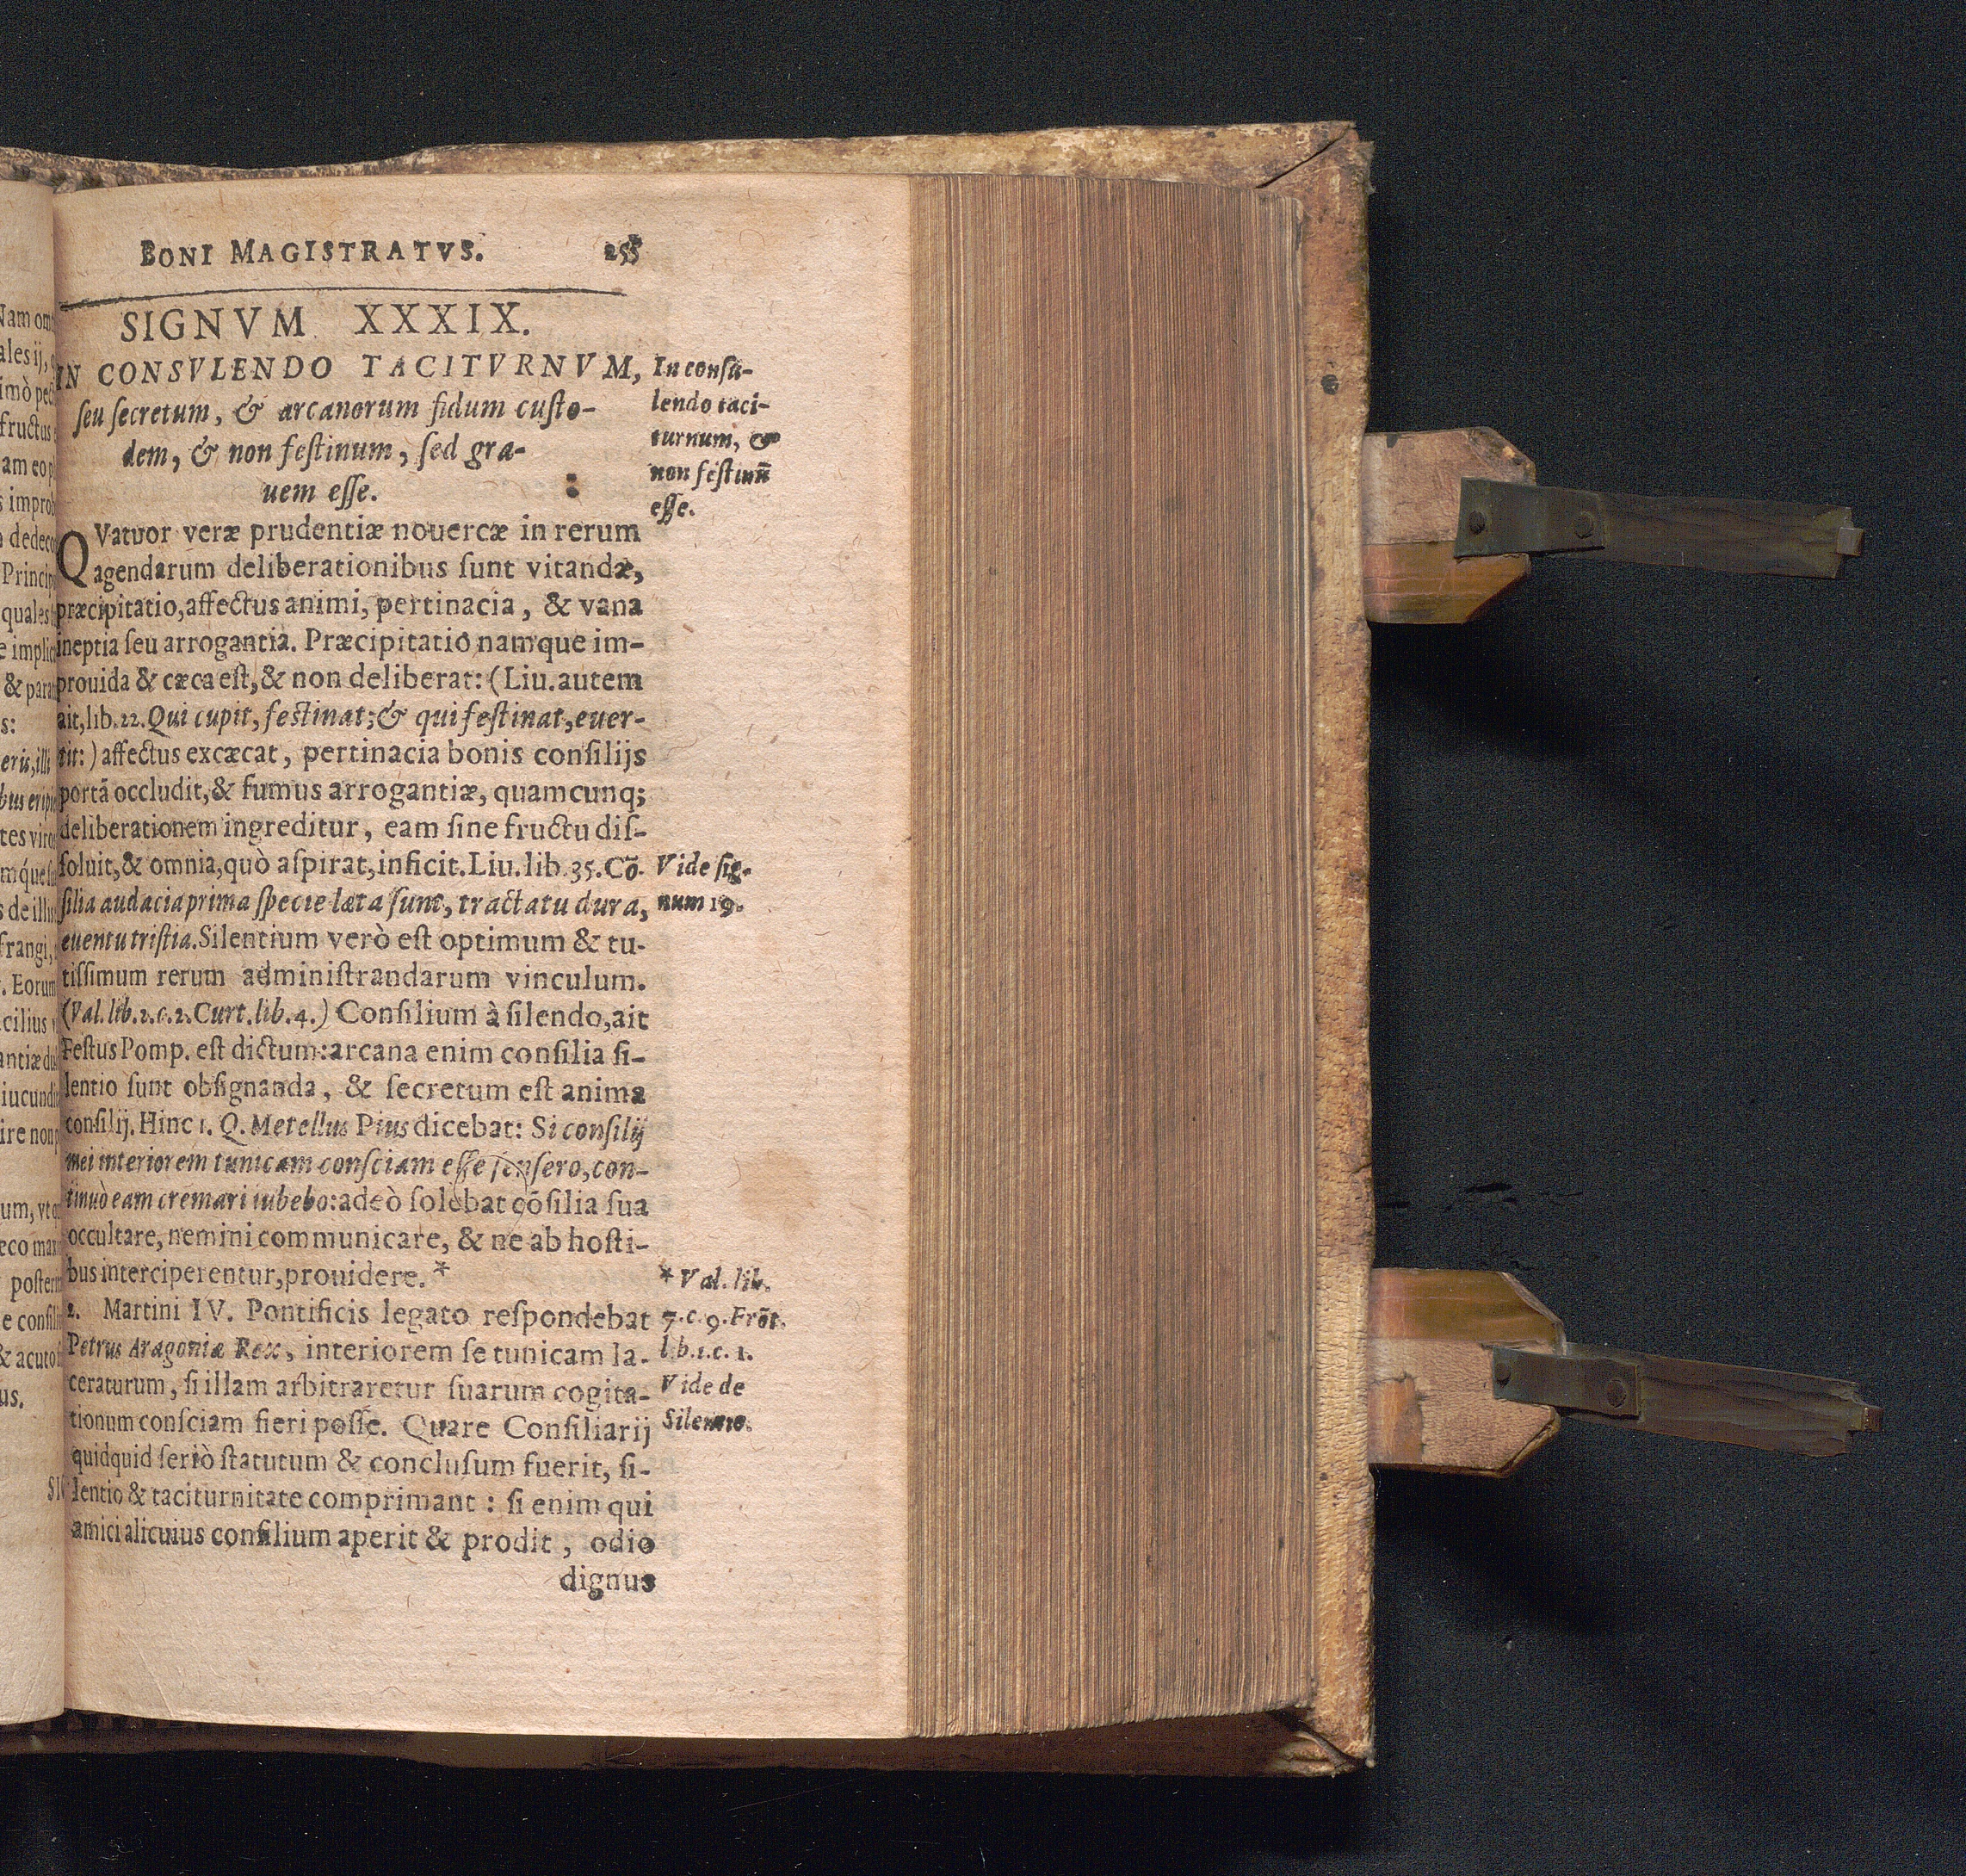 BONI MAGISTRATVS. 255
SIGNVM XXXIX.
IN CONSVLENDO TACITVRNVM,
ſeu ſecretum, & arcanorum fidum cuſto-
dem, & non feſtinum, ſed gra-
uem eſſe.
In conſu-
lendo taci-
turnum, &
non feſtinū
eſſe.
QVatuor veræ prudentiæ nouercæ in rerum
agendarum deliberationibus ſunt vitandæ,
præcipitatio, affectus animi, pertinacia, & vana
ineptia ſeu arrogantia. Præcipitatio namque im-
prouida & cæca eſt, & non deliberat: (Liu. autem
ait, lib. 22. Qui cupit, feſtinat; & qui feſtinat, euer-
tit:) affectus excæcat, pertinacia bonis conſilijs
portā occludit, & fumus arrogantiæ, quamcunq;
deliberationem ingreditur, eam ſine fructu diſ-
ſoluit, & omnia, quò aſpirat, inficit. Liu. lib. 35. Cō-
ſilia audacia prima ſpecie læta ſunt, tractatu dura,
euentu triſtia. Silentium verò eſt optimum & tu-
tiſſimum rerum adminiſtrandarum vinculum.
(Val. lib. 2. c. 2. Curt. lib. 4.) Conſilium à ſilendo, ait
Feſtus Pomp. eſt dictum: arcana enim conſilia ſi-
lentio ſunt obſignanda, & ſecretum eſt anima
conſilij. Hinc 1. Q. Metellus Pius dicebat: Si conſilij
mei interiorem tunicam conſciam eſſe ſenſero, con-
tinuò eam cremari iubebo: adeò ſolebat cōſilia ſua
occultare, nemini communicare, & ne ab hoſti-
bus interciperentur, prouidere. *
2. Martini IV. Pontificis legato reſpondebat
Petrus Aragoniæ Rex, interiorem ſe tunicam la-
ceraturum, ſi illam arbitraretur ſuarum cogita-
tionum conſciam fieri poſſe. Quare Conſiliarij
quidquid ſeriò ſtatutum & concluſum fuerit, ſi-
lentio & taciturnitate comprimant: ſi enim qui
amici alicuius conſilium aperit & prodit, odio
dignus
Vide ſig-
num 19.
* Val. lib.
7. c. 9. Frōt.
lib. 1. c. 1.
Vide de
Silentio.